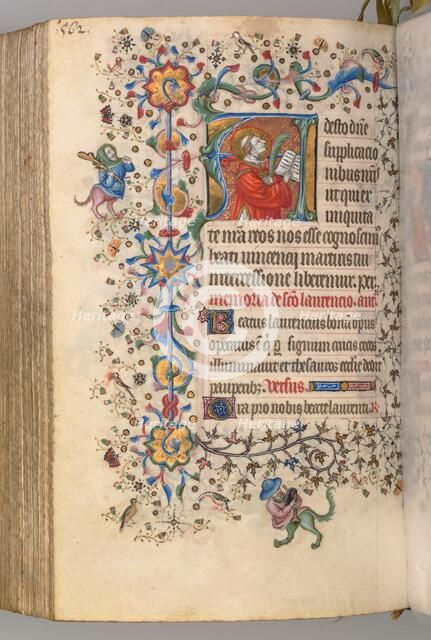 562.
desto dñe
supplicacio
nibus nr̃is
ut qui ex
iniquita
te nr̃a reos nos esse cognoscim
beati vincencij martiris tui
intercessione liberemur. per.
memoria de sc̃o laurencio. ant
Beatus laurencius bonũ opus
operatus est
signum crucis cecos
illuminavit et thesauros ecclie dedit
pauperib; Versus.
Ora pro nobis beate laurenti. R
Heritage
Heritage
Heritage
Heritage
Heritage
Heritage